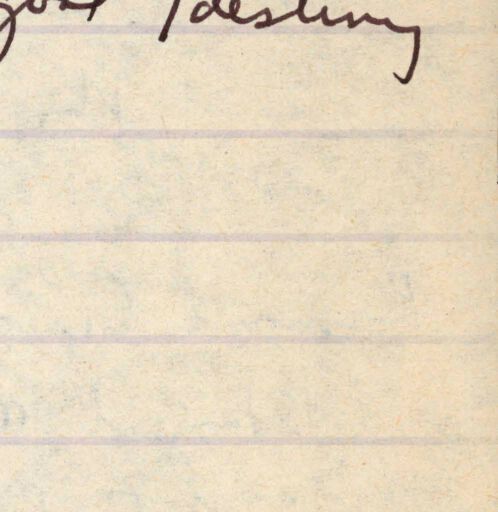 goal / destiny